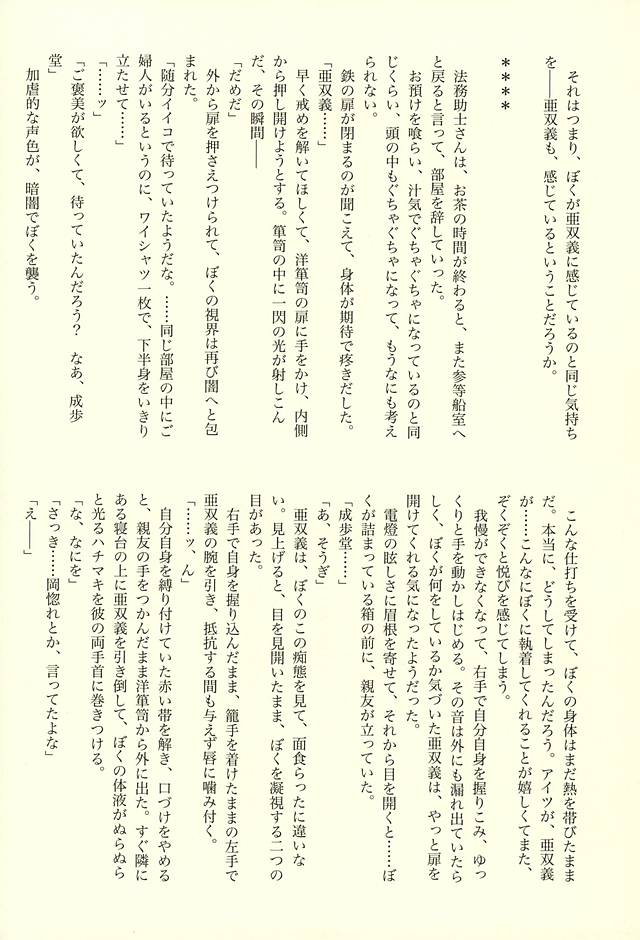 それはつまり、ぼくが亜双義に感じているのと同じ気持ち
を――亜双義も、感じているということだろうか。
＊＊＊＊
　法務助士さんは、お茶の時間が終わると、また参等船室へ
と戻ると言って、部屋を辞していった。
　お預けを喰らい、汁気でぐちゃぐちゃになっているのと同
じくらい、頭の中もぐちゃぐちゃになって、もうなにも考え
られない。
　鉄の扉が閉まるのが聞こえて、身体が期待で疼きだした。
「亜双義……」
　早く戒めを解いてほしくて、洋箪笥の扉に手をかけ、内側
から押し開けようとする。箪笥の中に一閃の光が射しこん
だ、その瞬間――
「だめだ」
　外から扉を押さえつけられて、ぼくの視界は再び闇へと包
まれた。
「随分イイコで待っていたようだな。……同じ部屋の中にご
婦人がいるというのに、ワイシャツ一枚で、下半身をいきり
立たせて……」
「……ッ」
「ご褒美が欲しくて、待っていたんだろう？　なあ、成歩
堂」
　加虐的な声色が、暗闇でぼくを襲う。
　こんな仕打ちを受けて、ぼくの身体はまだ熱を帯びたまま
だ。本当に、どうしてしまったんだろう。アイツが、亜双義
が……こんなにぼくに執着してくれることが嬉しくてまた、
ぞくぞくと悦びを感じてしまう。
　我慢ができなくなって、右手で自分自身を握りこみ、ゆっ
くりと手を動かしはじめる。その音は外にも漏れ出ていたら
しく、ぼくが何をしているか気づいた亜双義は、やっと扉を
開けてくれる気になったようだった。
　電燈の眩しさに眉根を寄せて、それから目を開くと……ぼ
くが詰まっている箱の前に、親友が立っていた。
「成歩堂……」
「あ、そうぎ」
　亜双義は、ぼくのこの痴態を見て、面食らったに違いな
い。見上げると、目を見開いたまま、ぼくを凝視する二つの
目があった。
　右手で自身を握り込んだまま、籠手を着けたままの左手で
亜双義の腕を引き、抵抗する間も与えず唇に噛み付く。
「……ッ、ん」
　自分自身を縛り付けていた赤い帯を解き、口づけをやめる
と、親友の手をつかんだまま洋箪笥から外に出た。すぐ隣に
ある寝台の上に亜双義を引き倒して、ぼくの体液がぬらぬら
と光るハチマキを彼の両手首に巻きつける。
「な、なにを」
「さっき……岡惚れとか、言ってたよな」
「え――」